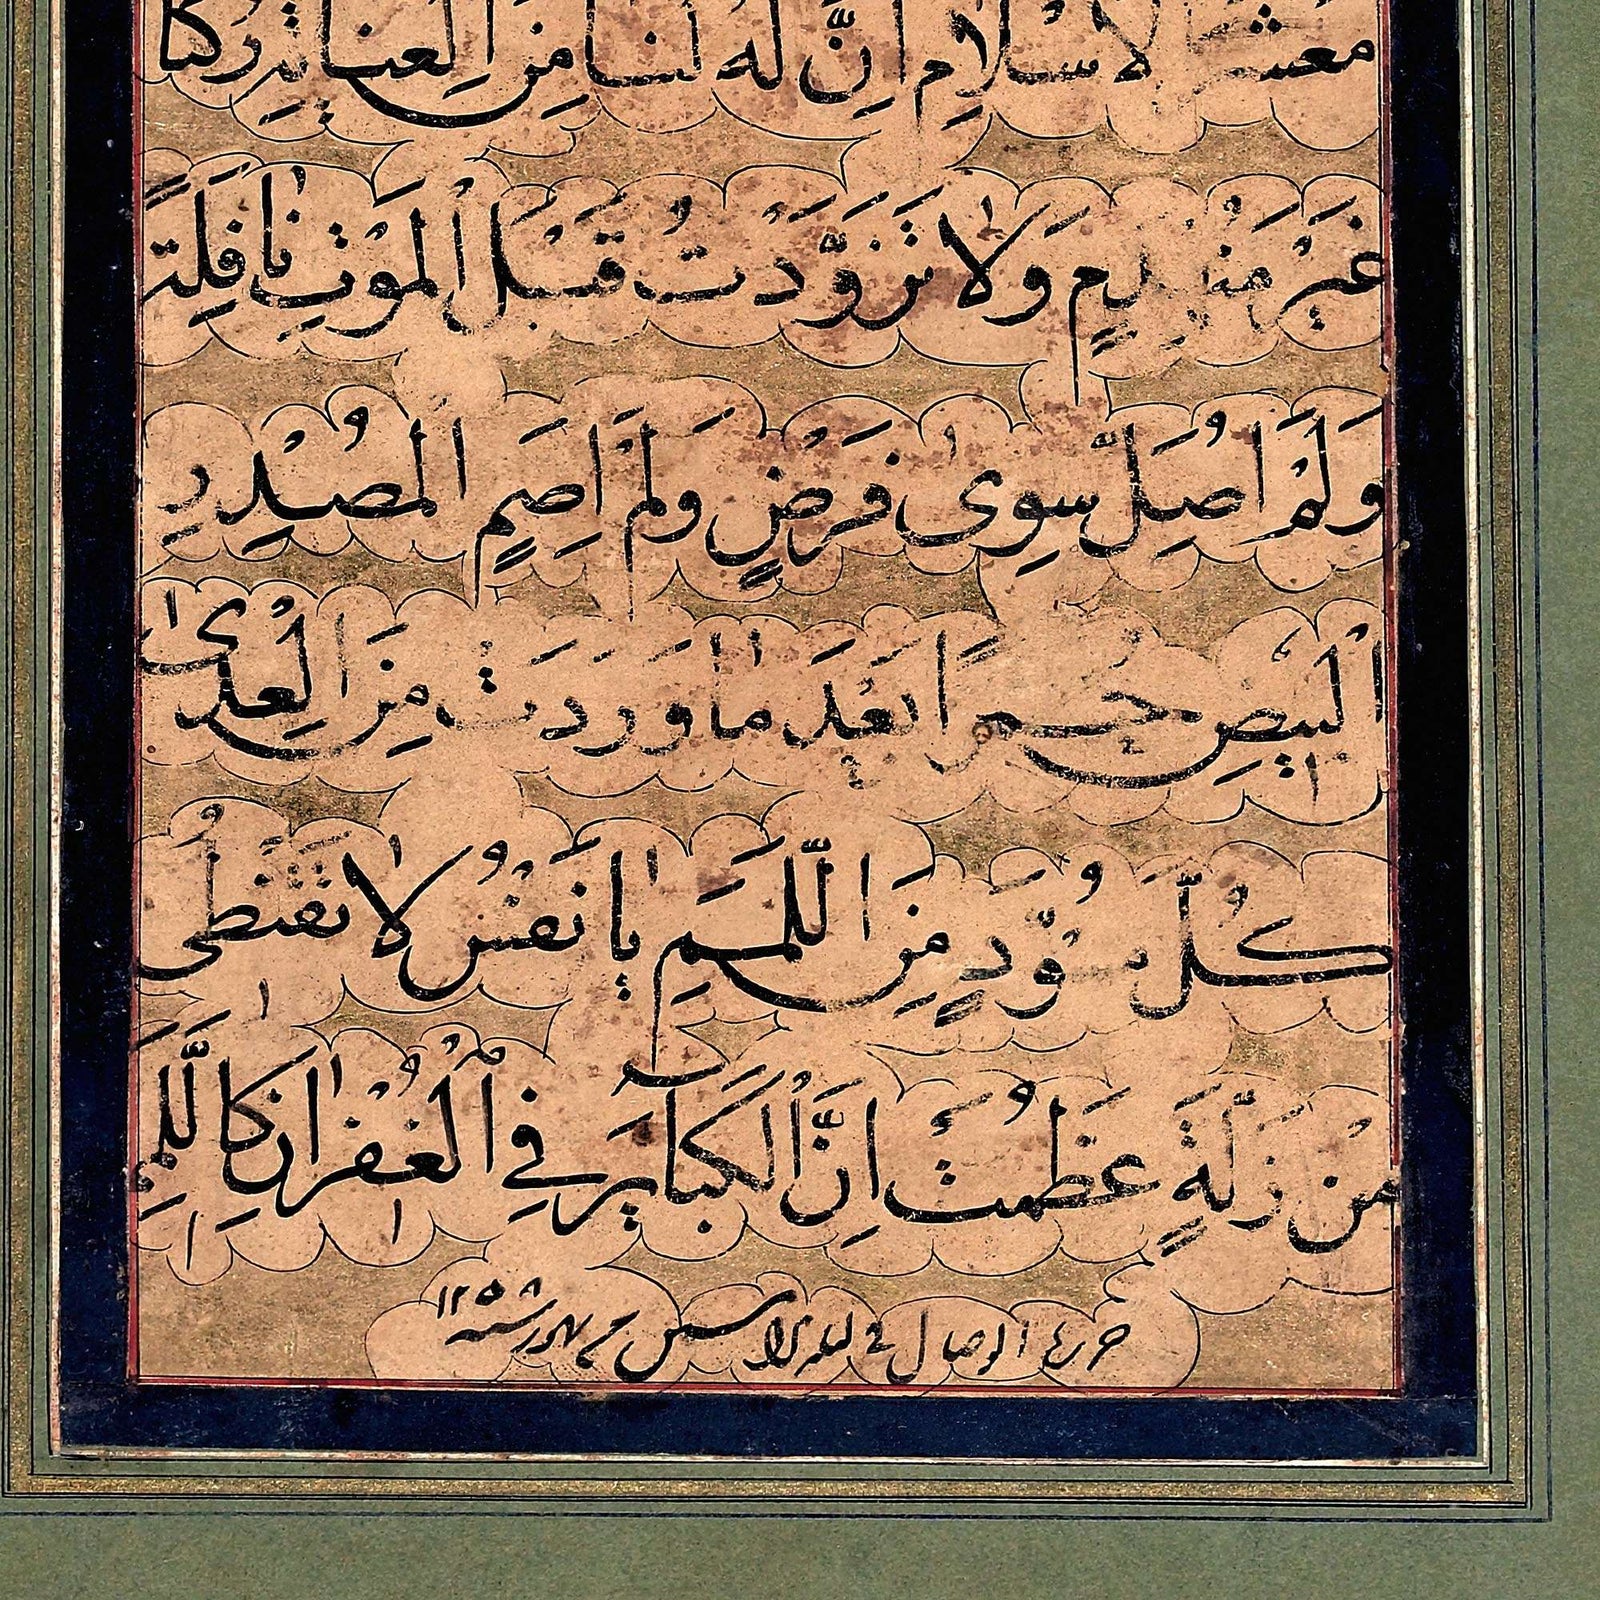 معشر الاسلام اِنَّ لَهُ لنا مِنَ العِنايَةِ رُكنًا
غَيْرَ مُنْهَدِمٍ وَلا تَزَوَّدْتُ قَبْلَ المَوْتِ نافِلَةً
وَلَمْ اُصَلِّ سِوى فَرْضٍ وَلَمْ اَصِمِ المُصْدِرِ
الْبيضِ حُمْرًا بَعْدَ ما وَرَدَتْ مِنَ الْعِدى
كُلَّ مُسْوَدٍّ مِنَ اللَّمَمِ يا نَفْسُ لا تَقْنَطي
مِنْ زَلَّةٍ عَظُمَتْ اِنَّ الْكَبايِرَ في الْغُفْرانِ كَاللَّمَمِ
حرره الوصال في ليله سنه ١٢٥٨